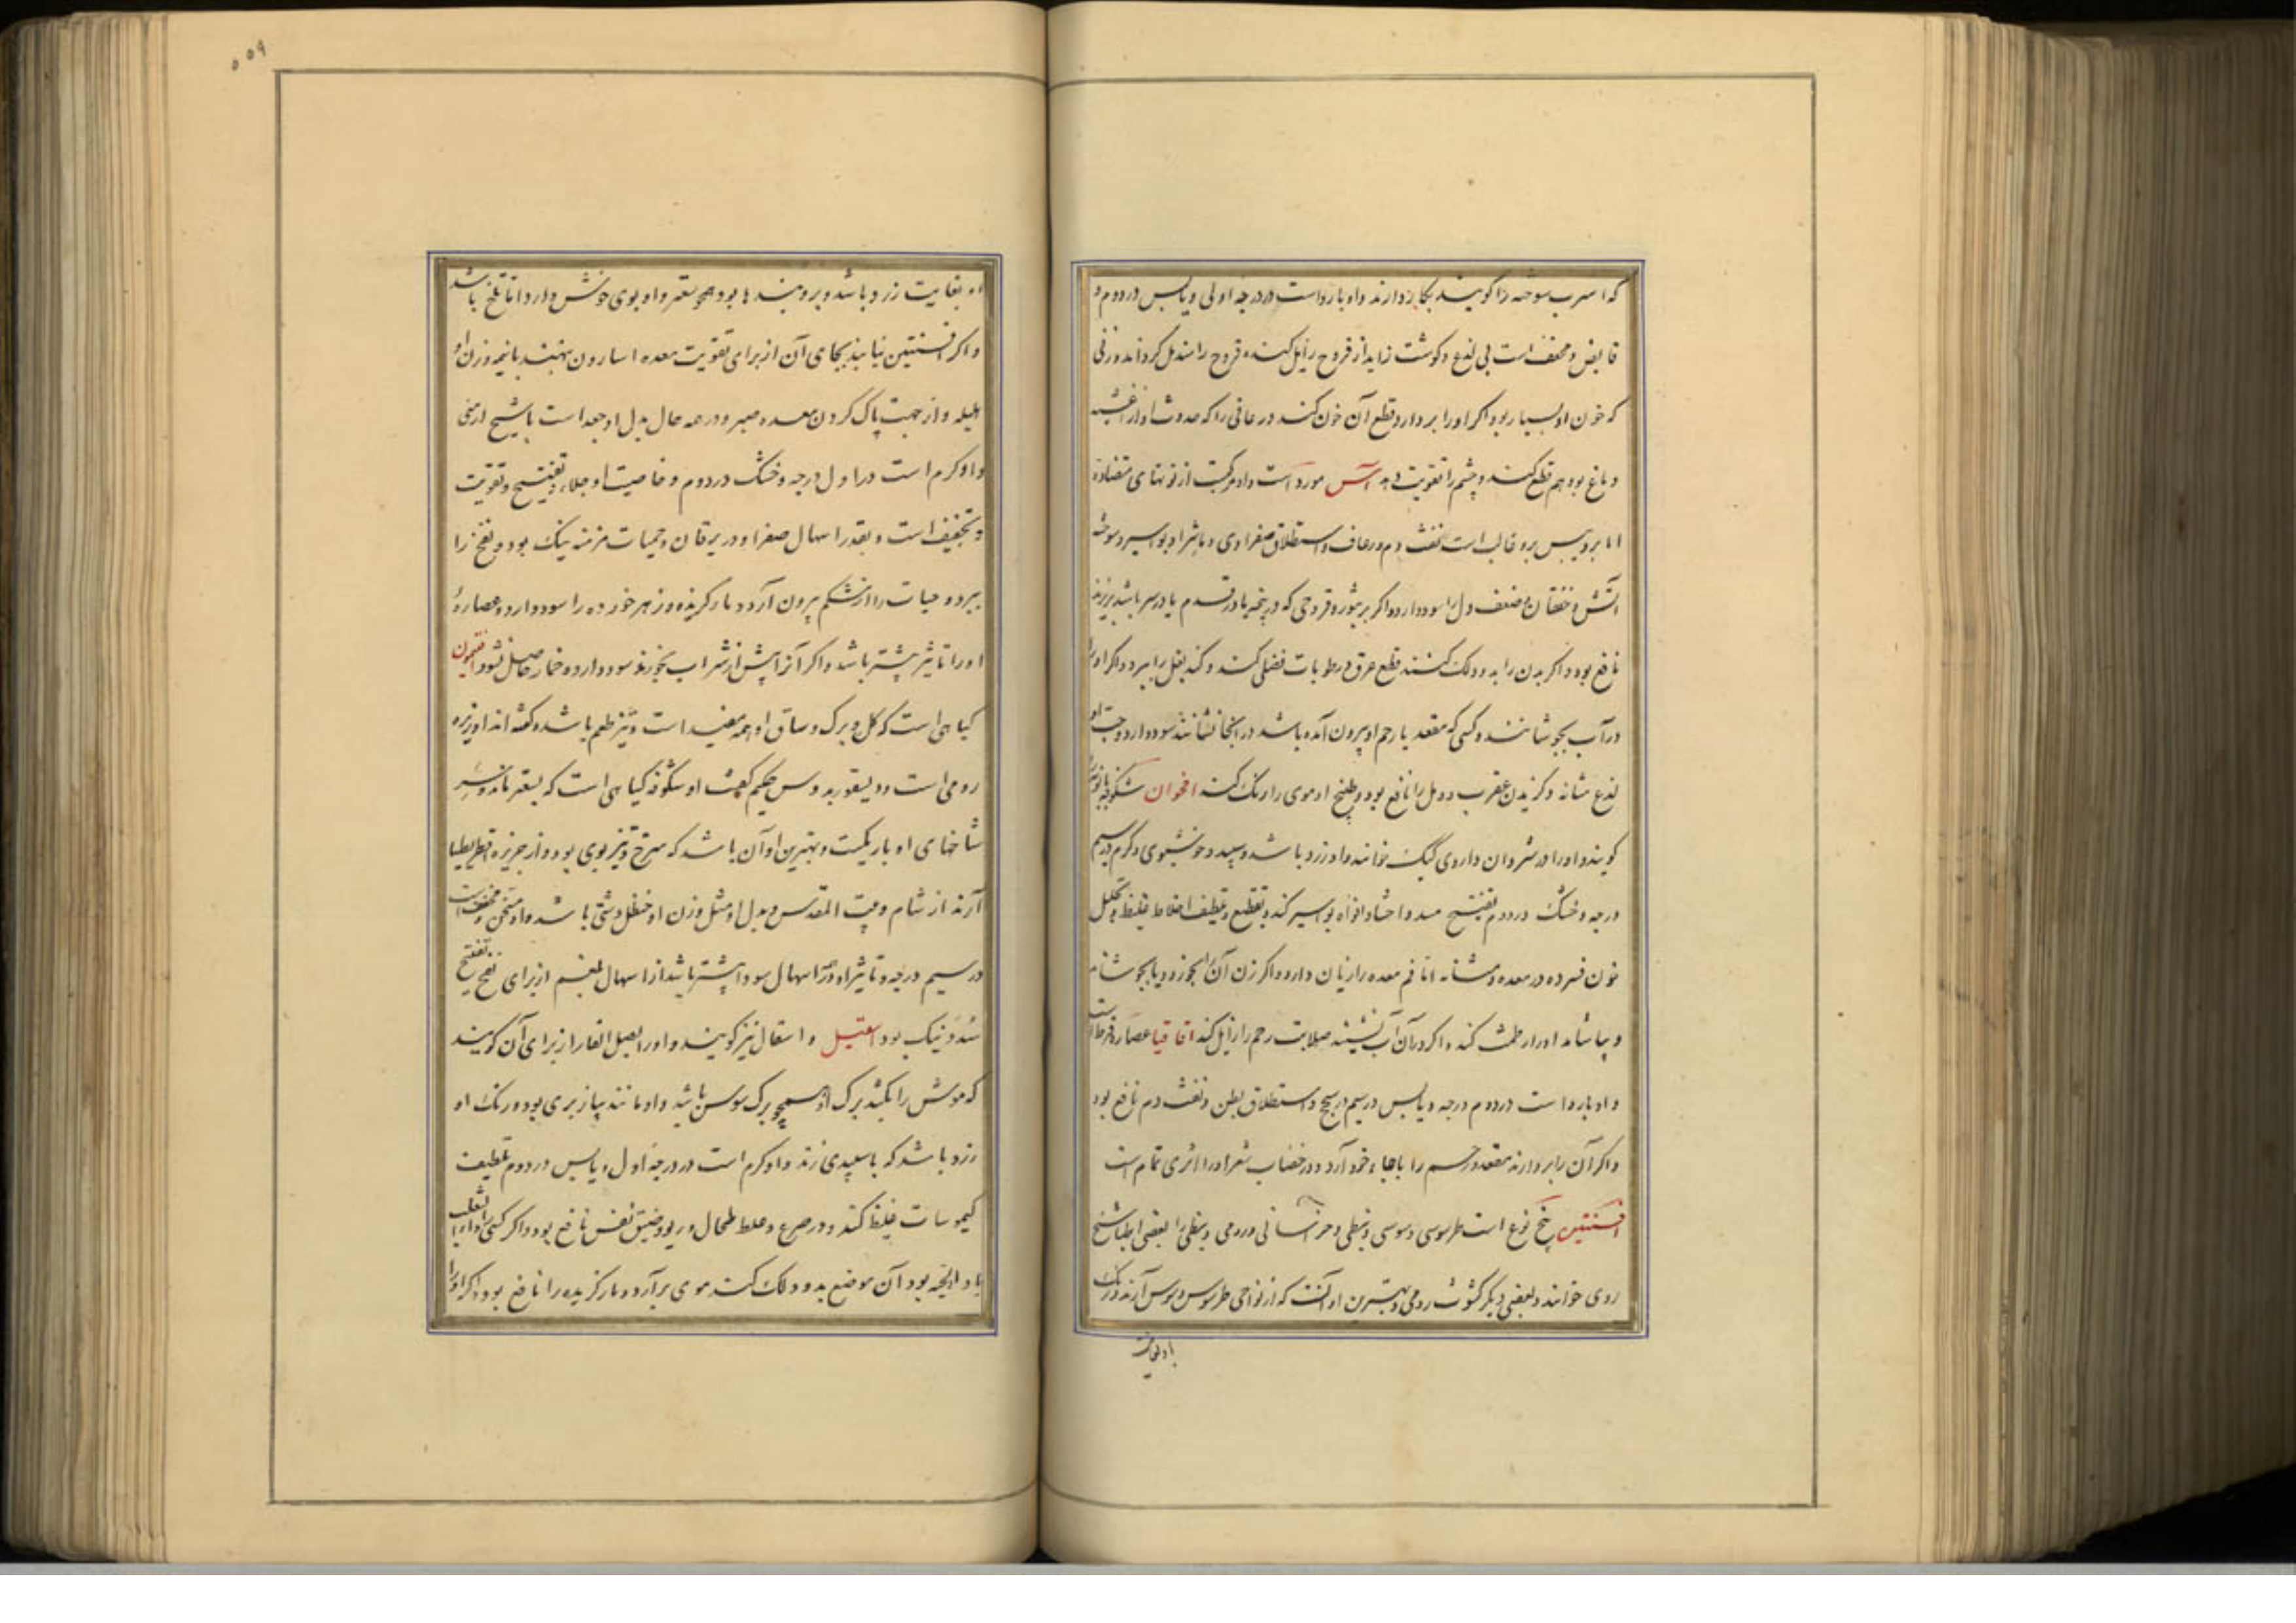 که اسرب سوخته را کویند بکار دارند واو بارد است در درجه اولی ویابس در دوم و
قابض ومجفف است بی لذع وکوشت زاید از قروح زایل کند وقروح را مندمل کرداند ورنی
که خون او بسیار بود اکر اورا بردارد قطع آن خون کند ورعافی را که حدوث او از اغشیه
دماغ بود هم قطع کند وچشم را تقویت دهد آس مورد است واو مرکبست از قوتهای متضاده
اما برد ویبس برو غالب است نفث دم ورعاف واستطلاق صفراوی وماشرا وبواسیر وسوخته
آتش وخفقان وضعف دل را سود دارد واکر بر بثور وقروحی که در پنجه یا در قدم یا در سر باشد بریزند
نافع بود واکر بدن را بدو دلک کنند قطع عرق ورطوبات فضلی کند وکند بغل را ببرد واکر اورا
در آب بجوشانند وکسی که مقعد یا رحم او بیرون آمده باشد در آنجا نشانند سود دارد وحب او
لذع مثانه وکزیدن عقرب ودمل را نافع بود وطبیخ او موی را رنک کند اقحوان شکوفه بابونه
کویند واورا در شروان داروی کیک خوانند واو زرد باشد وسپید وخوشبوی وکرم در سیم
درجه وخشک در دوم تفتیح سدد احشا وافواه بواسیر کند وتقطیع وتلطیف اخلاط غلیظ وتحلیل
خون فسرده در معده ومثانه اما فم معده را زیان دارد واکر زن آنرا بخورد ویا بجوشاند
وبیاشامد ادرار طمث کند واکر در آن آب نشیند صلابت رحم را زایل کند اقاقیا عصاره قرظ است
واو بارد است در دوم درجه ویابس در سیم در سحج واستطلاق بطن ونفث دم نافع بود
واکر آن را بردارند مقعد ورحم را باجاء خود آرد ودر خضاب شعر اورا اثری تمام است
افسنتین پنج نوع است طرسوسی وسوسی ونبطی وخراسانی ورومی ونبطی را بعضی اطبا شیخ
رومی خوانند وبعضی دیکر کشوث رومی وبهترین او آنست که از نواحی طرسوس وسوس آرند ورنک
او بغایت
او بغایت زرد باشد وبر وبندها بود همچو صعتر واو بوی خوش دارد اما تلخ باشد
واکر افسنتین نیابند بجای آن از برای تقویت معده اسارون نهند با نیم وزن او
هلیله واز جهت پاک کردن معده صبر ودر همه حال بدل او جعد است یا شیح ارمنی
واو کرم است در اول درجه وخشک در دوم وخاصیت او جلاء وتفتیح وتقویت
وتجفیف است وبقدر اسهال صفرا ودر یرقان وحمیات مزمنه نیک بود ونفخ را
ببرد وحیات را از شکم بیرون آرد ومار کزیده وزهر خورده را سود دارد وعصارهٔ
اورا تاثیر بیشتر باشد واکر آنرا پیش از شراب بخورند سود دارد وخمار حاصل نشود افتیمون
کیاهی است که کل وبرک وساق او همه مفید است وتیز طعم باشد وکفته اند او زیره
رومی است ودیسقوریدوس حکیم کفت او شکوفه کیاهی است که بصعتر ماند وسر
شاخهای او باریکست وبهترین او آن باشد که سرخ وتیز بوی بود واز جزیره اقریطیا
آرند از شام وبیت المقدس وبدل او مثل وزن او حنظل دشتی باشد واو مسخن ومجفف است
در سیم درجه وتاثیر او در اسهال سودا بیشتر باشد از اسهال بلغم از برای نفخ وتفتیح
سُدَد نیک بود اسقیل واسقال نیز کویند واورا بصل الفار از برای آن کویند
که موش را بکشد برک او همچو برک سوسن باشد واو مانند پیاز بری بود ورنک او
زرد باشد که با سپیدی زند واو کرم است در درجه اول ویابس در دوم تلطیف
کیموسات غلیظ کند ودر صرع وغلظ طحال وربو وضیق نفس نافع بود واکر کسی را داء الثعلب
یا داء الحیه بود آن موضع بدو دلک کند موی برآرد ومار کزیده را نافع بود واکر اورا